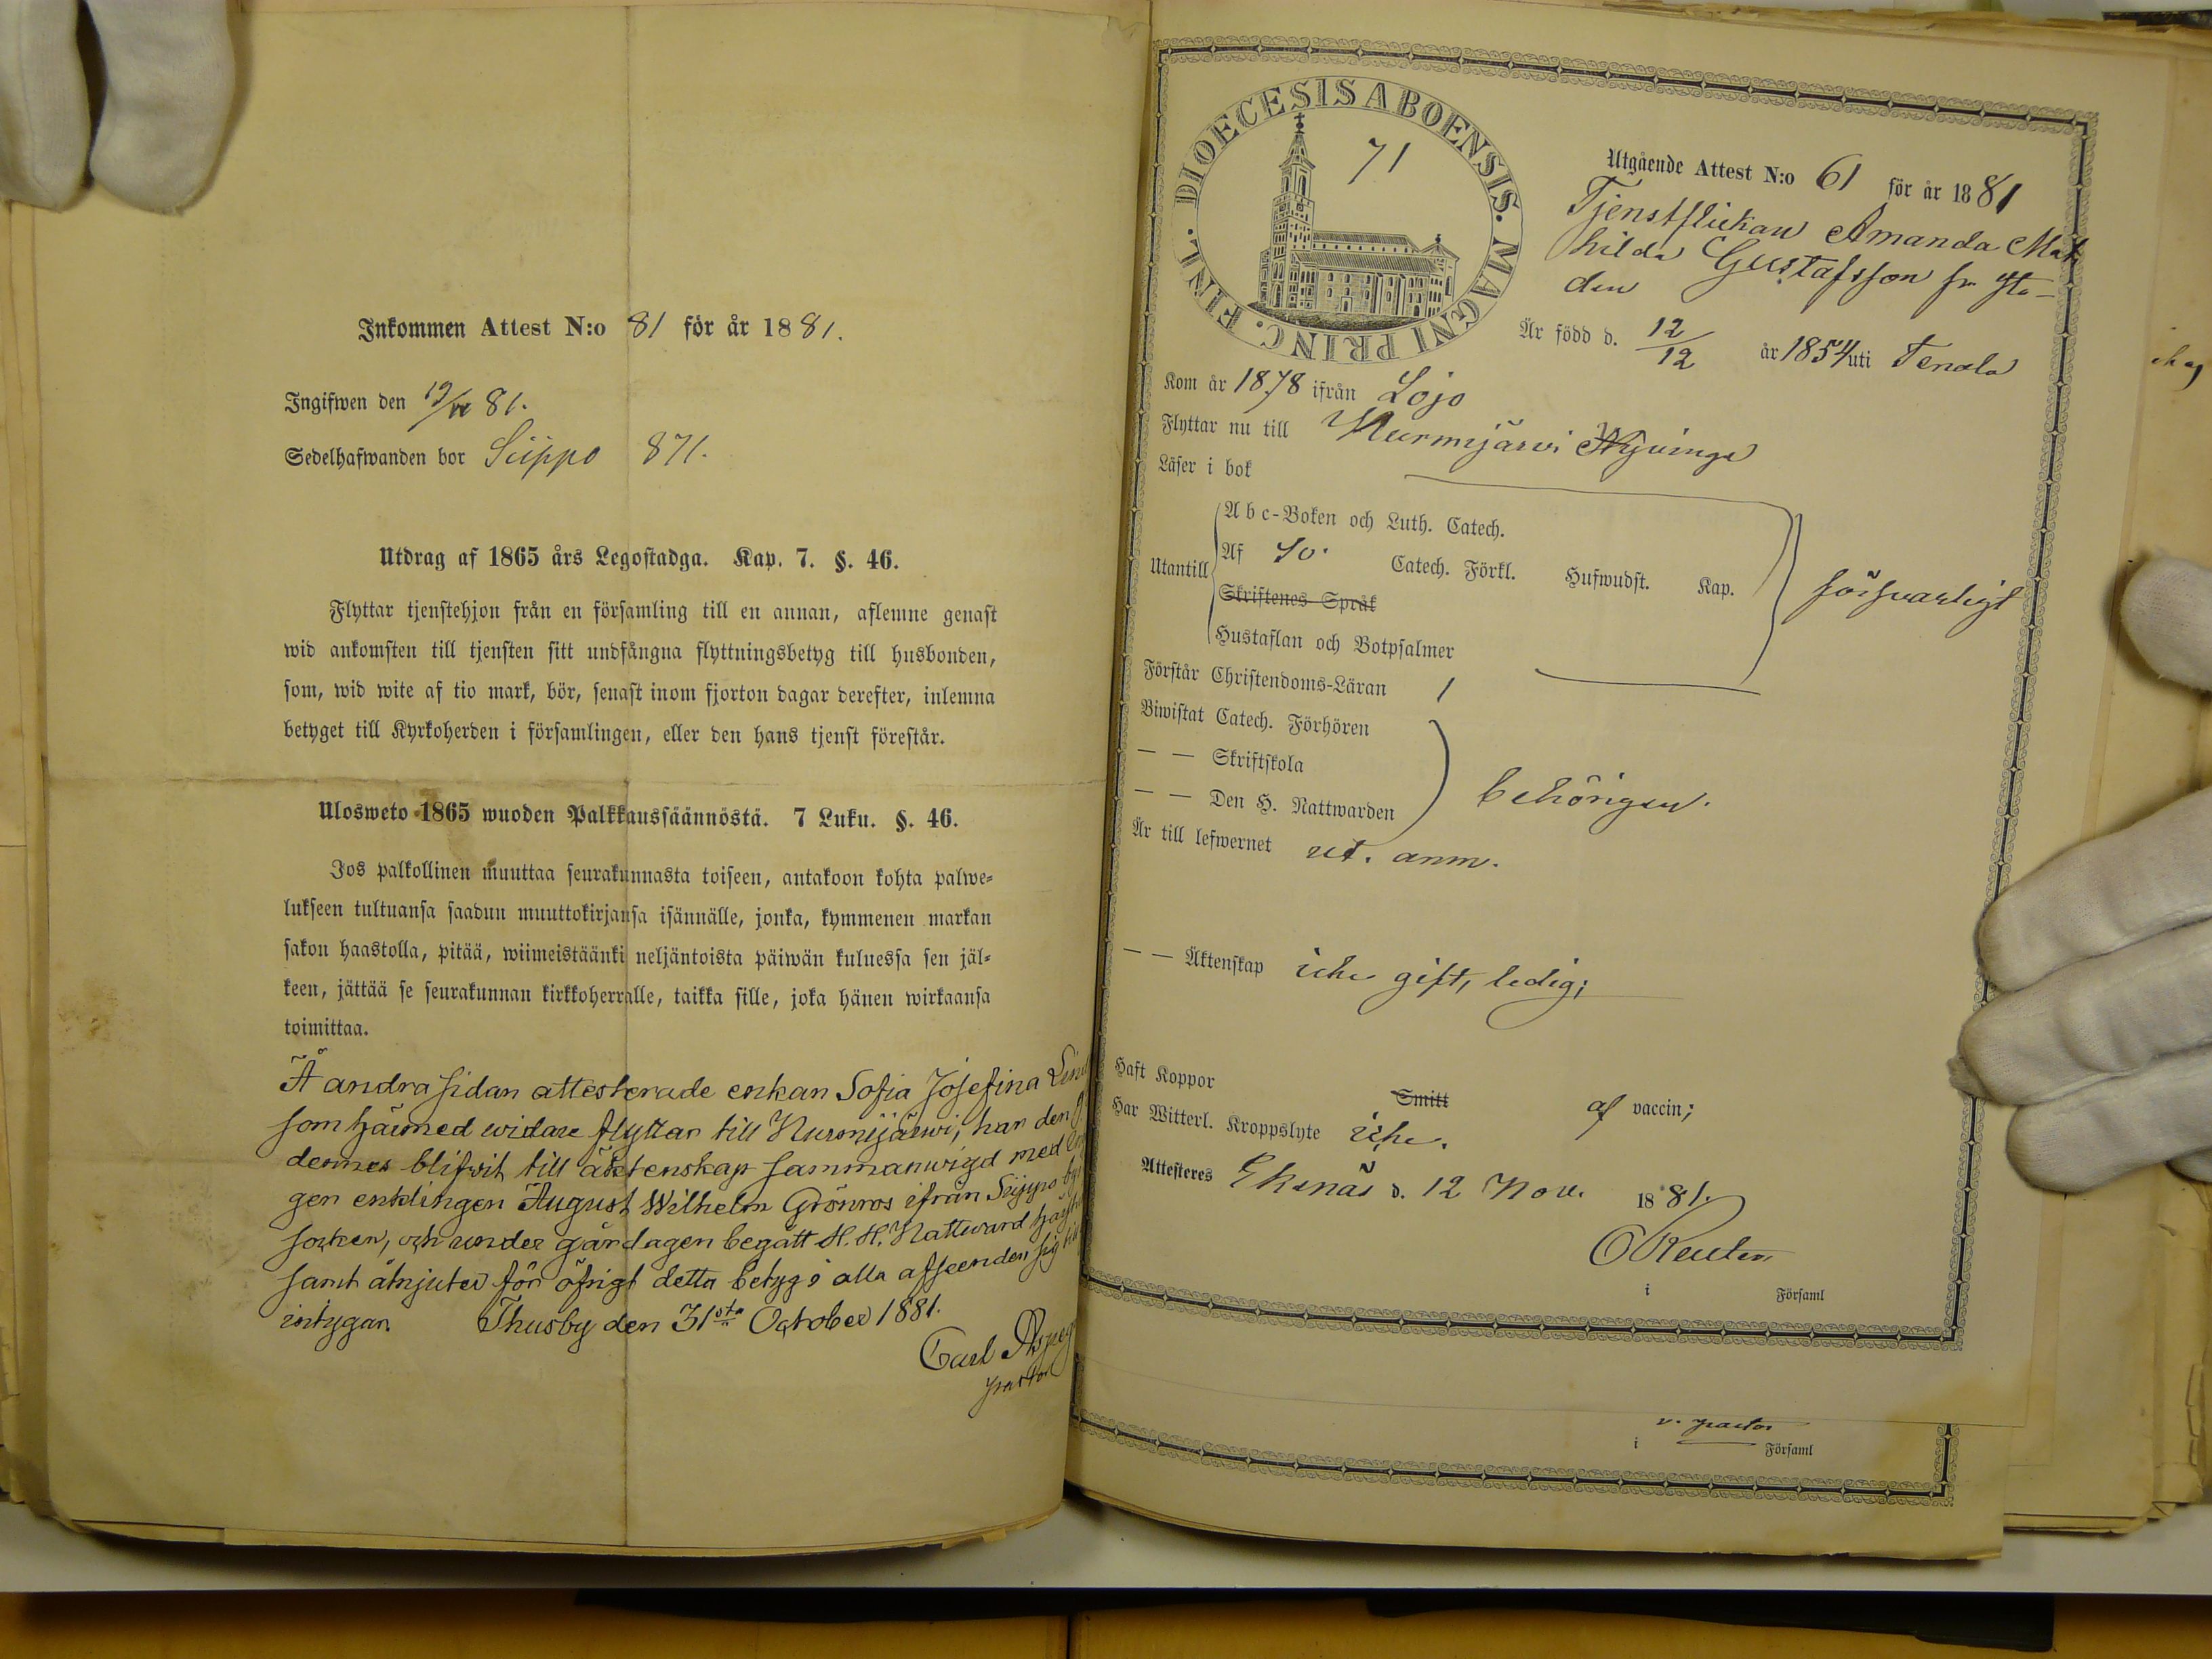 Inkommen Attest N:o 81 för år 1881.
Ingifwen den 81.
Sedelhafwanden bor Seippo 871.
Utdrag af 1865 års Legostadga. Kap. 7. §. 46.
Flyttar tjenstehjon från en församling till en annan, aflemne genast
wid ankomsten till tjensten sitt undfångna flyttningsbetyg till husbonden,
som, wid wite af tio mark, bör, senast inom fjorton dagar derefter, inlemna
betyget till Kyrkoherden i församlingen, eller den hans tjenst förestår.
Ulosweto 1865 wuoden Palkkaussäännöstä. 7 Luku. §. 46.
Jos palkollinen muuttaa seurakunnasta toiseen, antakoon kohta palwe-
lukseen tultuansa saadun muuttokirjansa isännälle, jonka, kymmenen markan
sakon haastolla, pitää, wiimeistäänki neljäntoista päiwän kuluessa sen jäl-
keen, jättää se seurakunnan kirkkoherralle, taikka sille, joka hänen wirkaansa
toimittaa.
Å andra sidan attesterade enkan Sofia Josefina
som härmed widare flyttar till Nurmijärwi, har den
dennes blifwit till äktenskap sammanwigd med
gen enklingen August Wilhelm Grönros ifrån Seippo
socken, och under gårdagen begått H. H. Nattward
samt åtnjuter för öfrigt detta betyg i alla afseenden sig
intygar. Thusby den 31sta October 1881.
Carl
pastor
DIOECESIS ABOENSIS. MAGNI PRINC. FINL.
71
Utgående Attest N:o 61 för år 1881
Tjenstflickan Amanda Mat
hilda Gustafsson fr sta-
den
Är född d. 12/12 år 1854 uti Tenala
Kom år 1878 ifrån Lojo
Flyttar nu till Nurmijärvi Hyvinge
Läser i bok
Abc-Boken och Luth. Catech.
Utantill Af 40. Catech. Förkl. Hufwudst. Kap. försvarligt
Skriftenes Språk
Hustaflan och Botpsalmer
Förstår Christendoms-Läran 1
Biwistat Catech. Förhören
— — Skriftskola
— — Den H. Nattwarden behörigen.
Är till lefwernet ut. anm.
— — Äktenskap icke gift, ledig;
Haft Koppor Smitt af vaccin;
Har Witterl. Kroppslyte icke.
Attesteres Ekenäs d. 12 Nov. 1881.
O Reuter
i Församl
v. pastor
i Församl